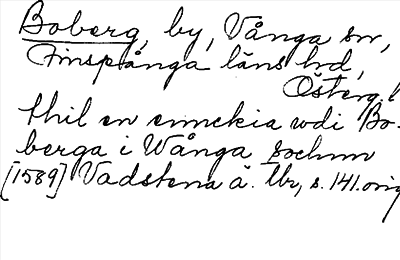 Boberg, by, Vånga sn,
Finspånga läns hd,
Österg. l
thil en ennekia wdi Bo-
berga i Wånga sochnn
[1589] Vadstena ä. Jbr, s. 141. orig